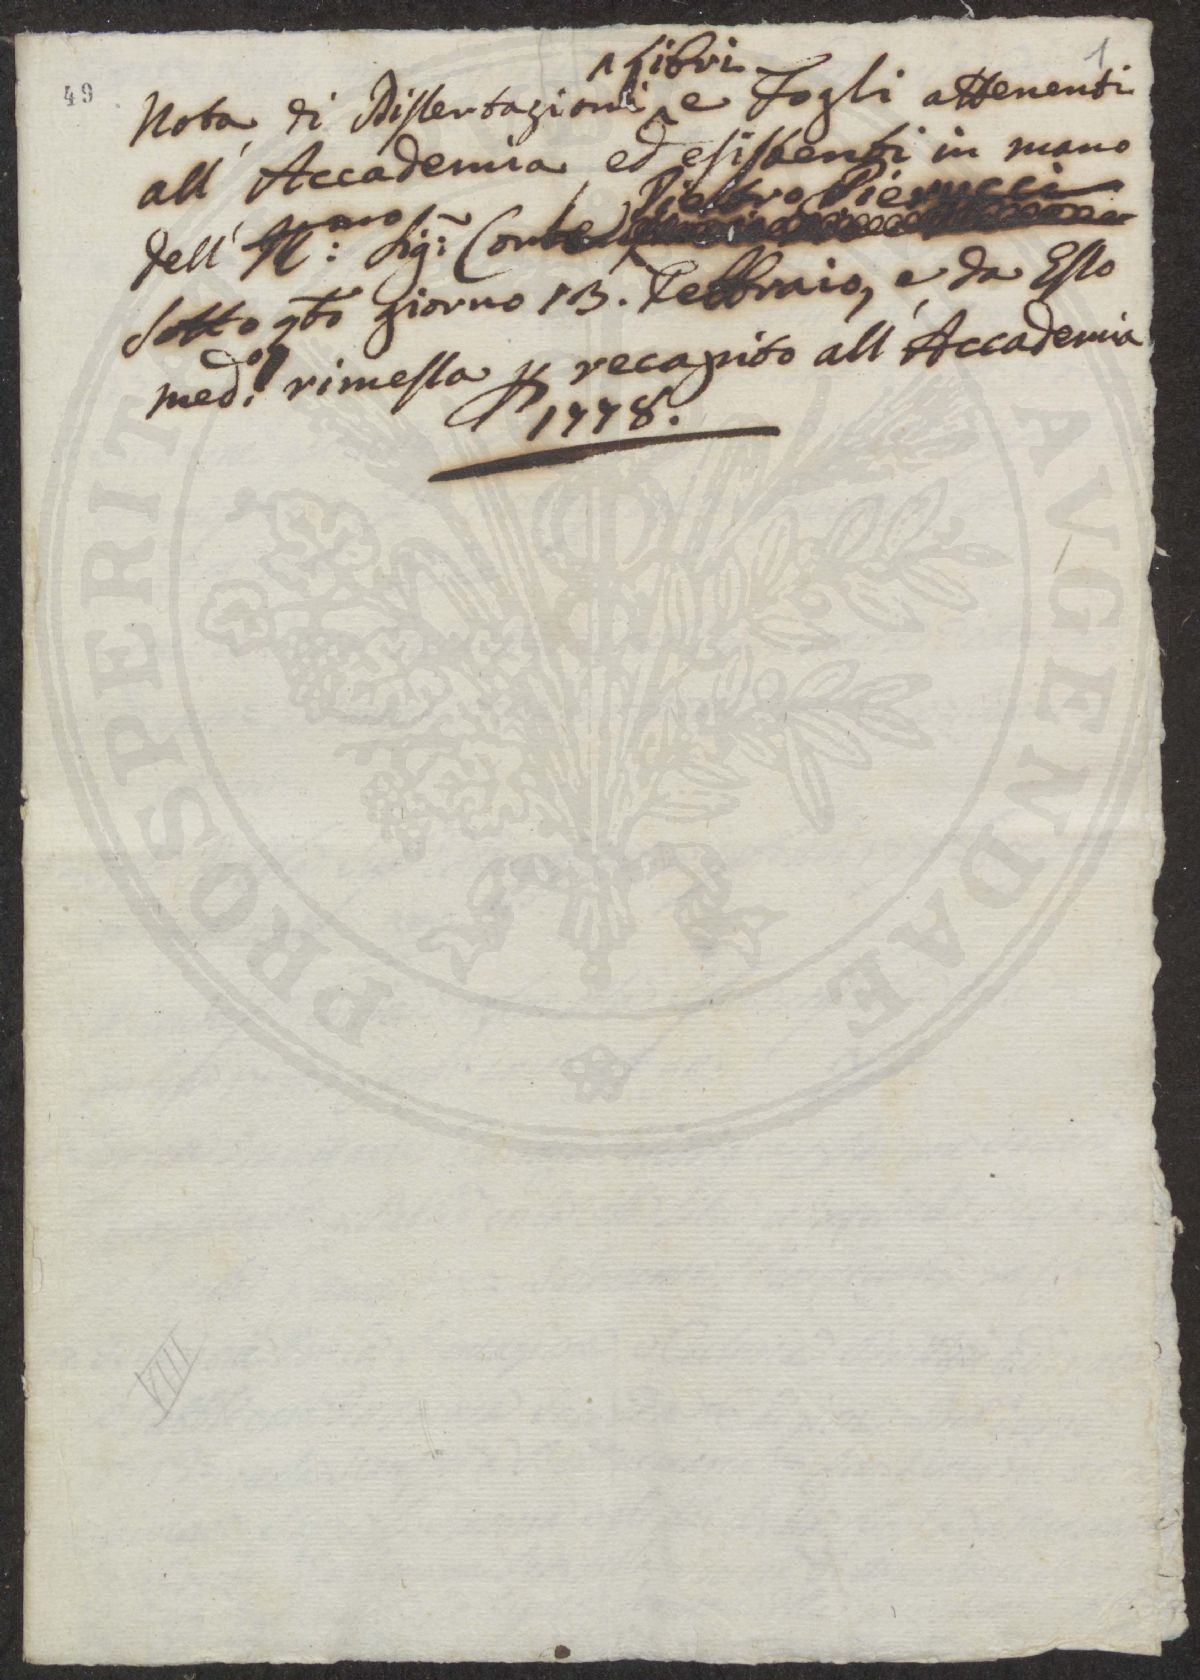 49
1
Libri
Nota di Dissertazioni e Fogli attenenti
all' Accademia ed esistenti in mano
Pietro Pierucci
dell' Ill:mo Sig:r Conte
sotto qto giorno 13. Febbraio, e da Esso
med:o rimessa p recapito all' Accademia
1778.
VIII
PROSPERITATI AVGENDAE